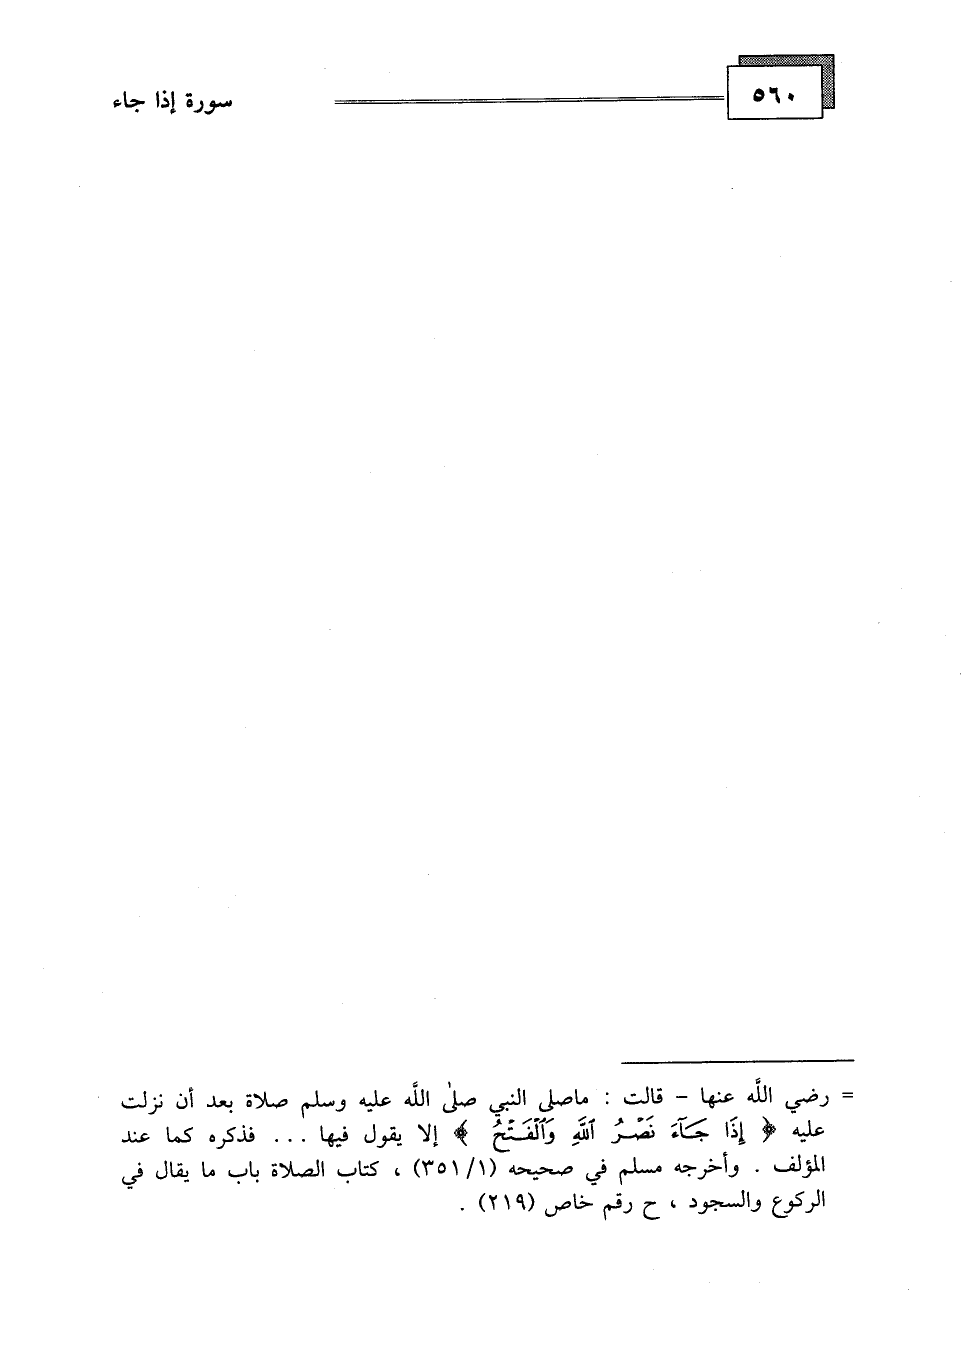 ٥٦٠
سورة إذا جاء
= رضي اللَّه عنها – قالت : ماصلى النبي صلىٰ اللَّه عليه وسلم صلاة بعد أن نزلت
عليه ﴿ إِذَا جَآءَ نَصۡرُ ٱللَّهِ وَٱلۡفَتۡحُ ﴾ إلا يقول فيها ... فذكره كما عند
المؤلف . وأخرجه مسلم في صحيحه (٣٥١/١) ، كتاب الصلاة باب ما يقال في
الركوع والسجود ، ح رقم خاص (٢١٩) .